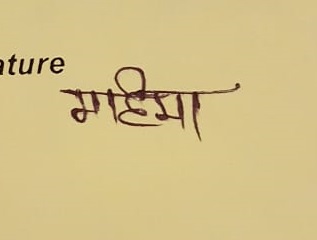 ature
महिमा